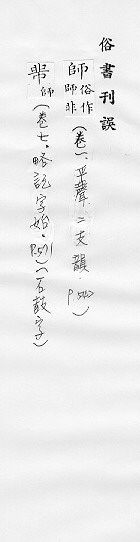 俗書刊誤
師 俗作師非(卷一、平聲、二支韻.P.540)
帠 師(卷七、略記字始.P.571)(石鼓字)